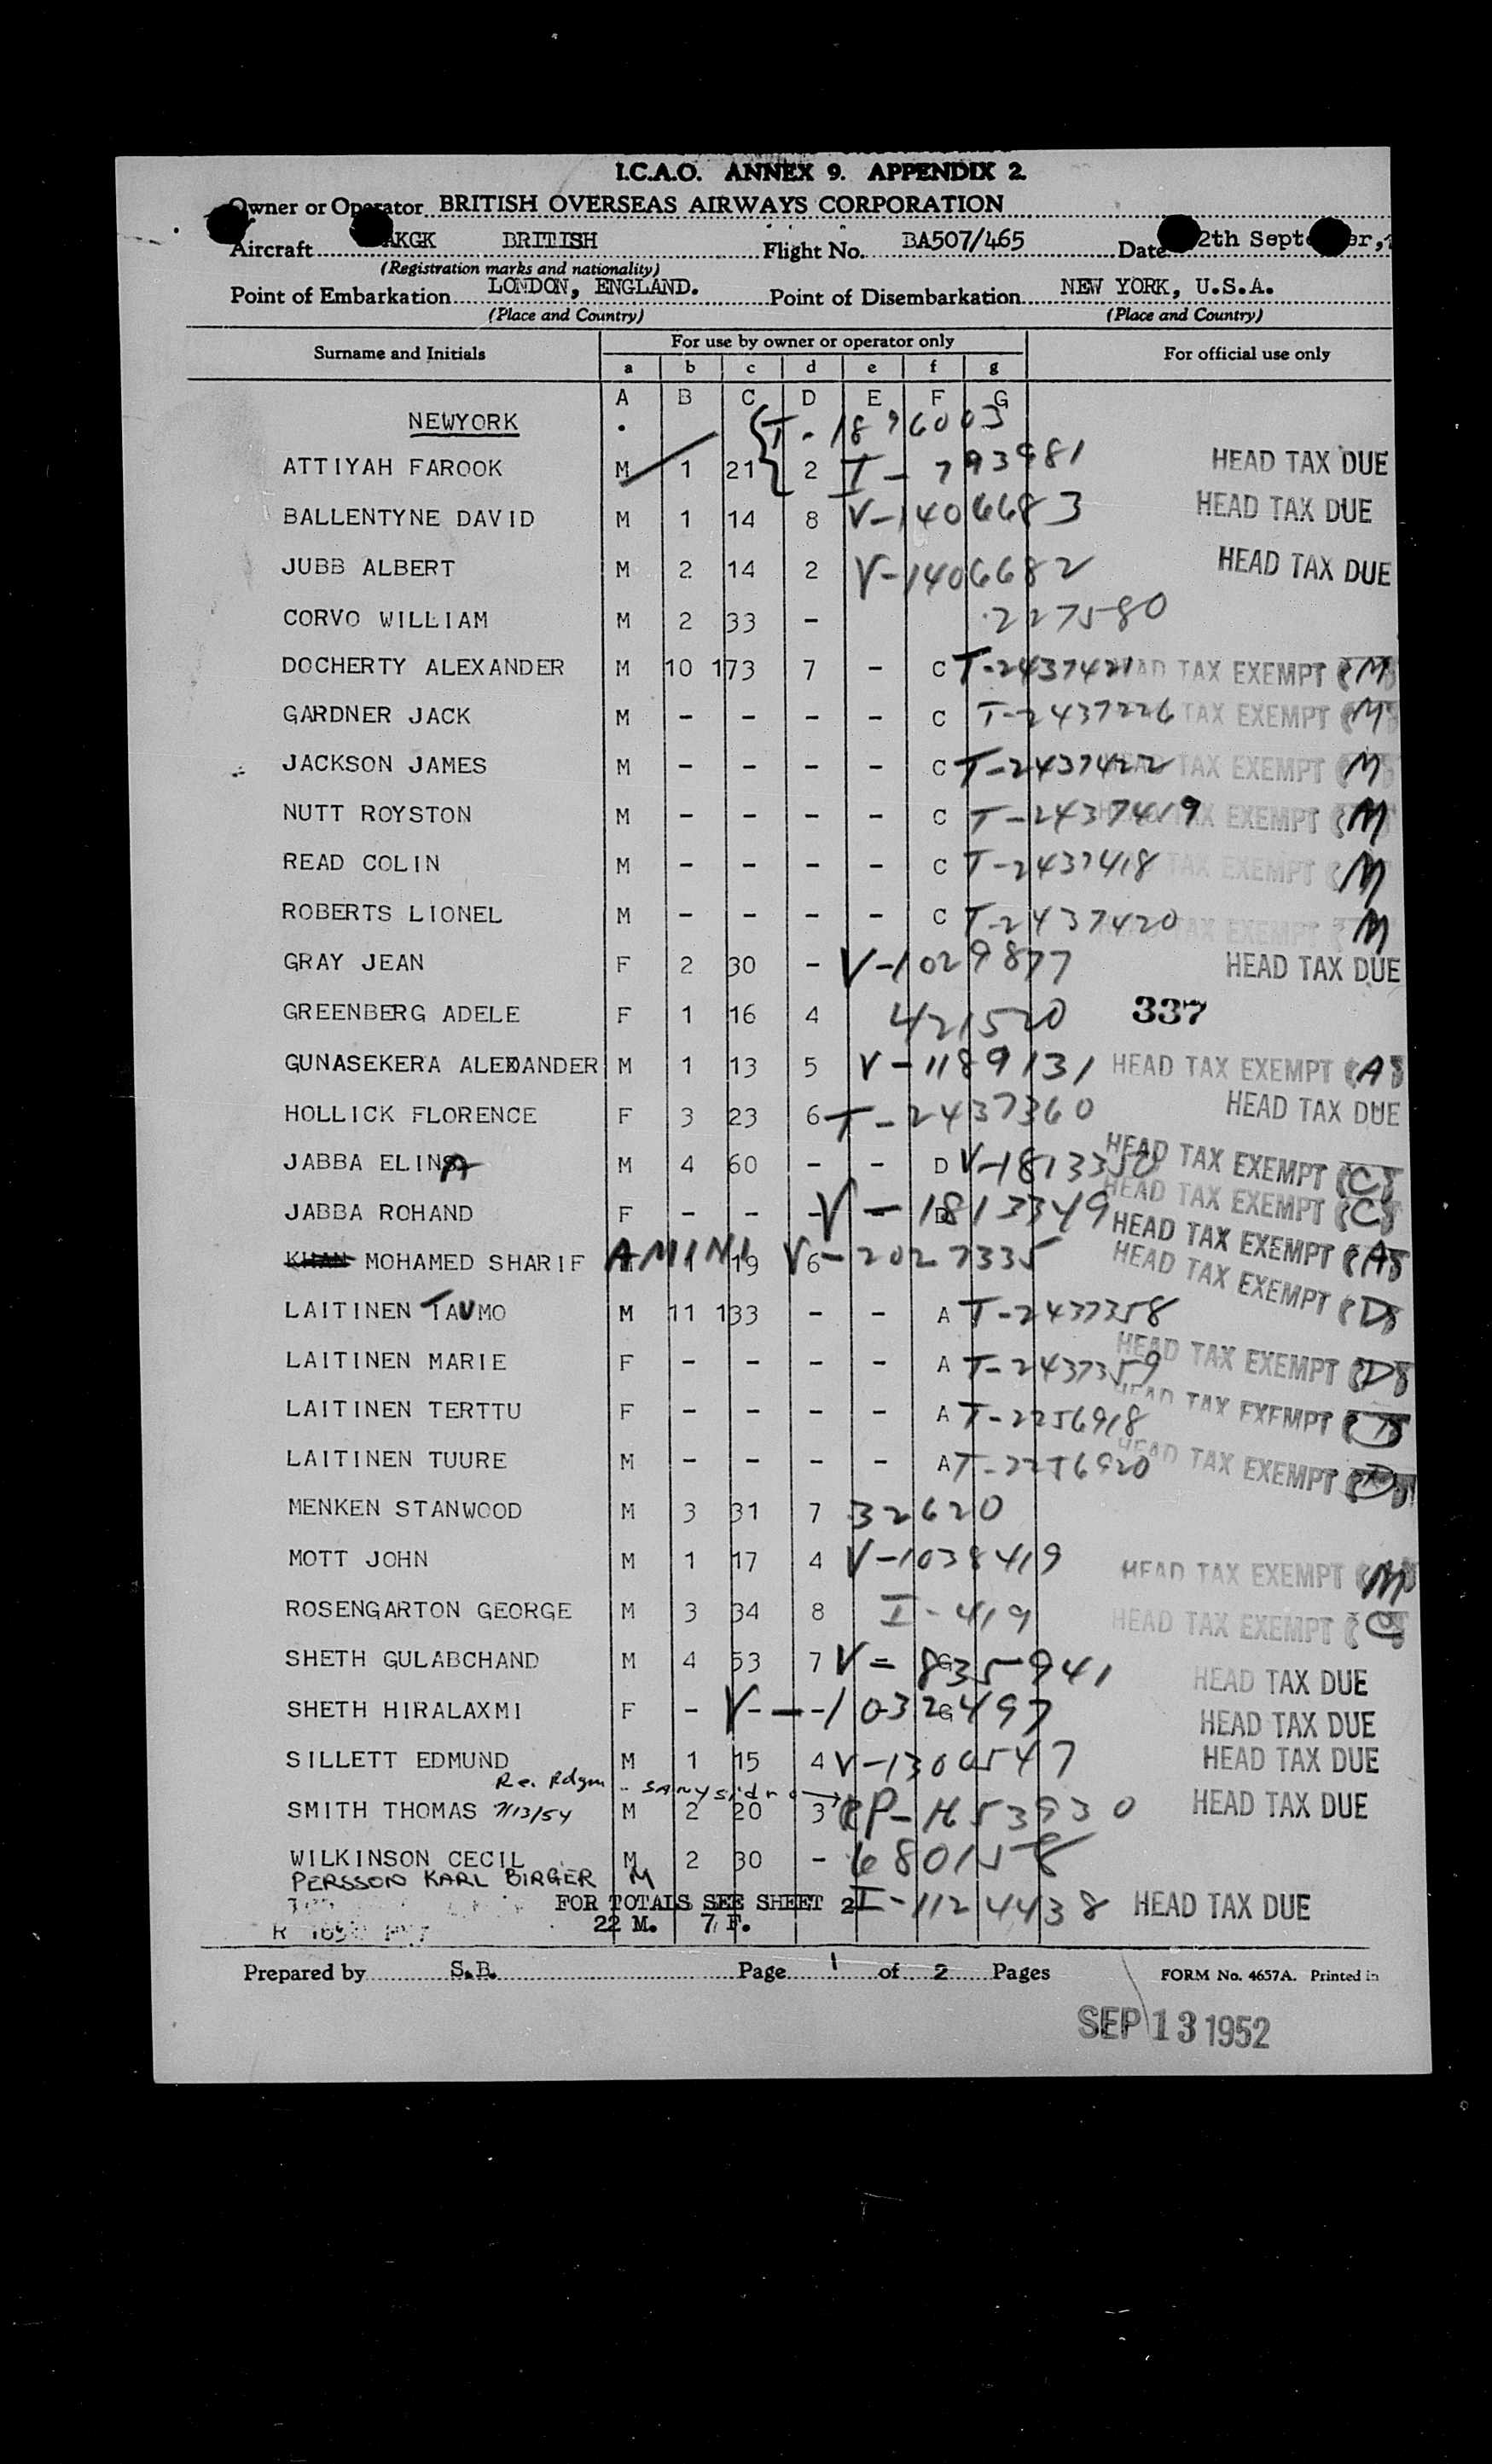 I.C.A.O. ANNEX 9. APPENDIX 2.
Owner or Operator BRITISH OVERSEAS AIRWAYS CORPORATION
Aircraft AKGK BRITISH Flight No. BA507/465 Date 2th September,
(Registration marks and nationality)
Point of Embarkation LONDON, ENGLAND. Point of Disembarkation NEW YORK, U.S.A.
(Place and Country) (Place and Country)
Surname and Initials For use by owner or operator only For official use only
a b c d e f g
A B C D E F G
NEWYORK T-1896003
ATTIYAH FAROOK M 1 21 2 I-793981 HEAD TAX DUE
BALLENTYNE DAVID M 1 14 8 V-1406683 HEAD TAX DUE
JUBB ALBERT M 2 14 2 V-1406682 HEAD TAX DUE
CORVO WILLIAM M 2 33 - 227580
DOCHERTY ALEXANDER M 10 173 7 - C T-2437421 HEAD TAX EXEMPT (M)
GARDNER JACK M - - - - C T-2437226 TAX EXEMPT (M)
JACKSON JAMES M - - - - C T-2437422 TAX EXEMPT (M)
NUTT ROYSTON M - - - - C T-2437419 TAX EXEMPT (M)
READ COLIN M - - - - C T-2437418 TAX EXEMPT (M)
ROBERTS LIONEL M - - - - C T-2437420 TAX EXEMPT (M)
GRAY JEAN F 2 30 - V-1029877 HEAD TAX DUE
GREENBERG ADELE F 1 16 4 421520 337
GUNASEKERA ALEXANDER M 1 13 5 V-1189131 HEAD TAX EXEMPT (A)
HOLLICK FLORENCE F 3 23 6 T-2437360 HEAD TAX DUE
JABBA ELINA M 4 60 - - D V-1813350 HEAD TAX EXEMPT (C)
JABBA ROHAND F - - - - D V-1813349 HEAD TAX EXEMPT (C)
KHAN MOHAMED SHARIF AMINI 1 19 6 V-2027335 HEAD TAX EXEMPT (A)
LAITINEN TAUMO M 11 133 - - A T-2437358 HEAD TAX EXEMPT (D)
LAITINEN MARIE F - - - - A T-2437359 HEAD TAX EXEMPT (D)
LAITINEN TERTTU F - - - - A T-2256918 HEAD TAX EXEMPT (D)
LAITINEN TUURE M - - - - A T-2256920 HEAD TAX EXEMPT (D)
MENKEN STANWOOD M 3 31 7 32620
MOTT JOHN M 1 17 4 V-1038419 HEAD TAX EXEMPT (M)
ROSENGARTON GEORGE M 3 34 8 I-419 HEAD TAX EXEMPT
SHETH GULABCHAND M 4 53 7 G V-835941 HEAD TAX DUE
SHETH HIRALAXMI F - - - G V-1032497 HEAD TAX DUE
SILLETT EDMUND M 1 15 4 V-1300547 HEAD TAX DUE
Re. Rdgm - SANysidro
SMITH THOMAS 7/13/54 M 2 20 3 CP-H53930 HEAD TAX DUE
WILKINSON CECIL M 2 30 - 680158
PERSSON KARL BIRGER M
FOR TOTALS SEE SHEET 2 I-1124438 HEAD TAX DUE
22 M. 7 F.
Prepared by S.B. Page 1 of 2 Pages FORM No. 4657A. Printed in
SEP 13 1952